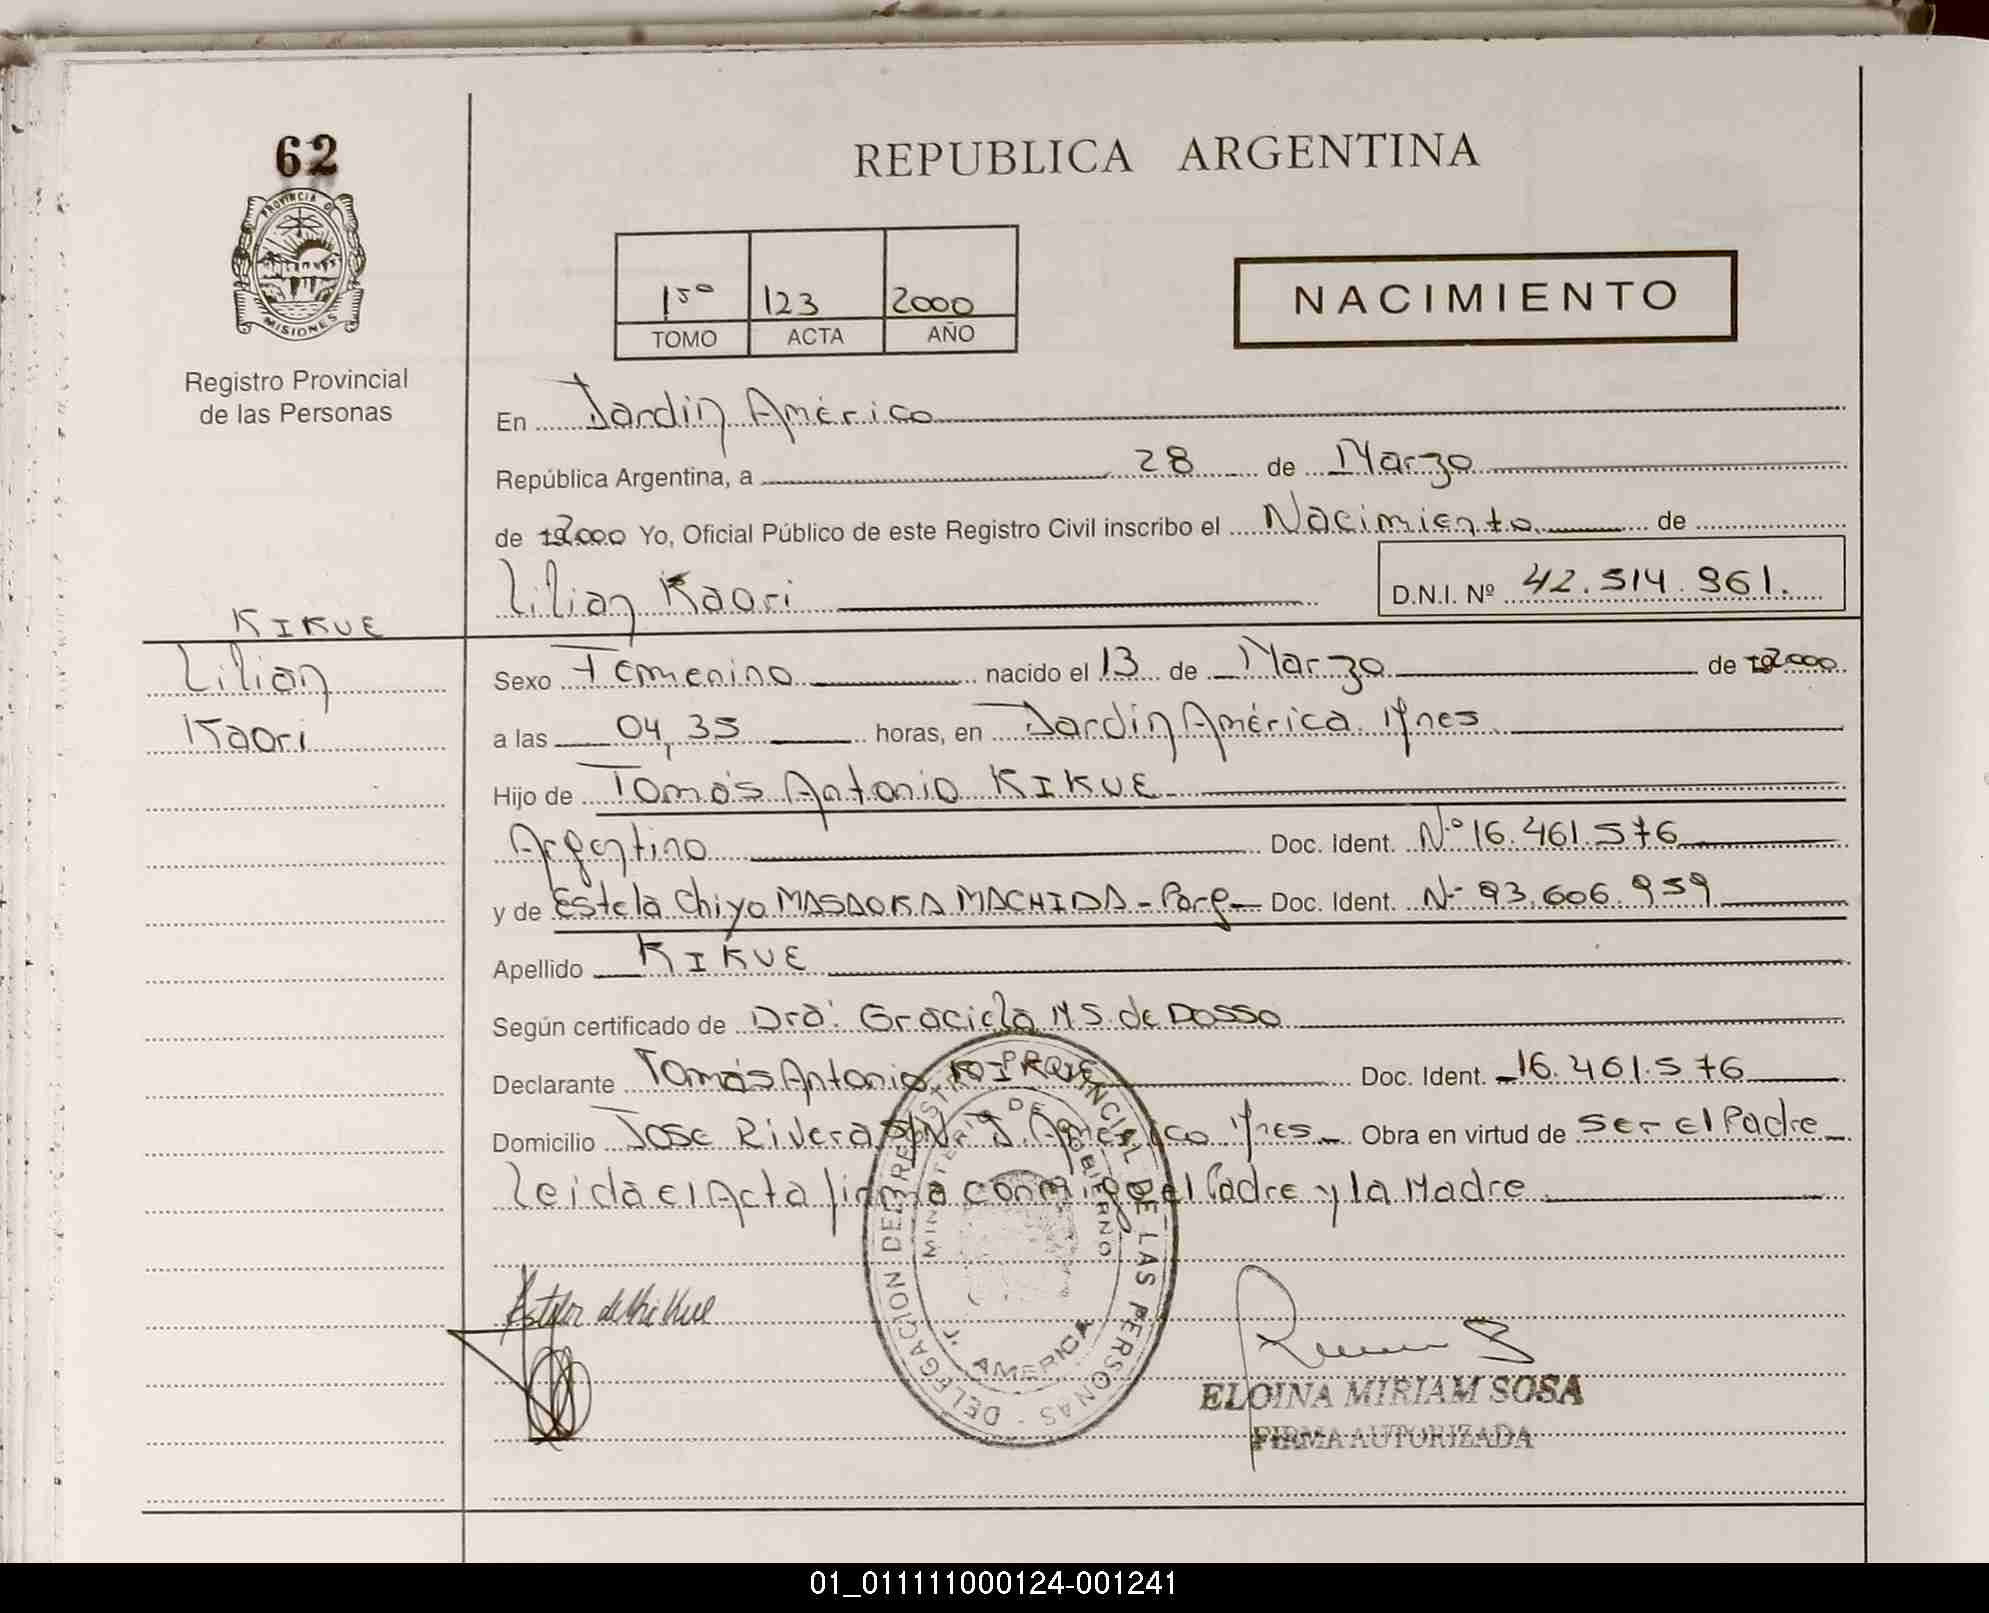 62
PROVINCIA D
MISIONES
Registro Provincial
de las Personas
REPUBLICA ARGENTINA
1º 123 2000
TOMO ACTA AÑO
NACIMIENTO
En Jardín América
República Argentina, a 28 de Marzo
de 2000 Yo, Oficial Público de este Registro Civil inscribo el Nacimiento de
Lilian Kaori D.N.I. Nº 42.514.961.
KIKUE
Lilian
Kaori
Sexo Femenino nacido el 13 de Marzo de 2000
a las 04,35 horas, en Jardín América Mnes
Hijo de Tomás Antonio KIKUE
Argentino Doc. Ident. Nº 16.461.576
y de Estela Chiyo MASAOKA MACHIDA - Parg- Doc. Ident. Nº 93.606.959
Apellido KIKUE
Según certificado de Dra. Graciela M S. de Dosso
Declarante Tomás Antonio KIKUE Doc. Ident. 16.461.576
Domicilio Jose Rivera S/Nº J. América Mnes Obra en virtud de Ser el Padre
Leida el Acta firma conmigo el Padre y la Madre
DELEGACION DEL REGISTRO PROVINCIAL DE LAS PERSONAS -
MINISTERIO DE GOBIERNO
J. AMERICA
Estela de Kikue
ELOINA MIRIAM SOSA
FIRMA AUTORIZADA
01_011111000124-001241